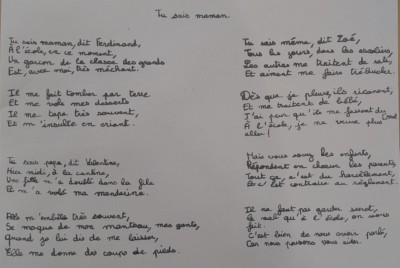 Tu sais maman.
Tu sais maman, dit Ferdinand,
À l'école, en ce moment,
Un garçon de la classe des grands
Est, avec moi, très méchant.
Il me fait tomber par terre
Et me vole mes desserts
Il me tape très souvent,
Et m'insulte en criant.
Tu sais papa, dit Valentine,
Hier midi, à la cantine,
Une fille m'a doublé dans la file
Et m'a volé ma mandarine.
Elle m'embête très souvent,
Se moque de mon manteau, mes gants,
Quand je lui dis de me laisser,
Elle me donne des coups de pieds.
Tu sais mémé, dit Zoé,
Tous les jours, dans les escaliers,
Les autres me traitent de
Et aiment me faire trébucher.
Dès que je pleure, ils ricanent,
Et me traitent de bébé,
J'ai peur qu'ils me fassent du mal
À l'école, je ne veux plus
aller !
Mais vous savez les enfants,
Répondent en chœur les parents,
Tout ça, c'est du harcèlement,
Et c'est contraire au règlement.
Il ne faut pas garder secret,
Le mal qu'à l'école, on vous
fait.
C'est bien de nous avoir parlé,
Car nous pouvons vous aider.